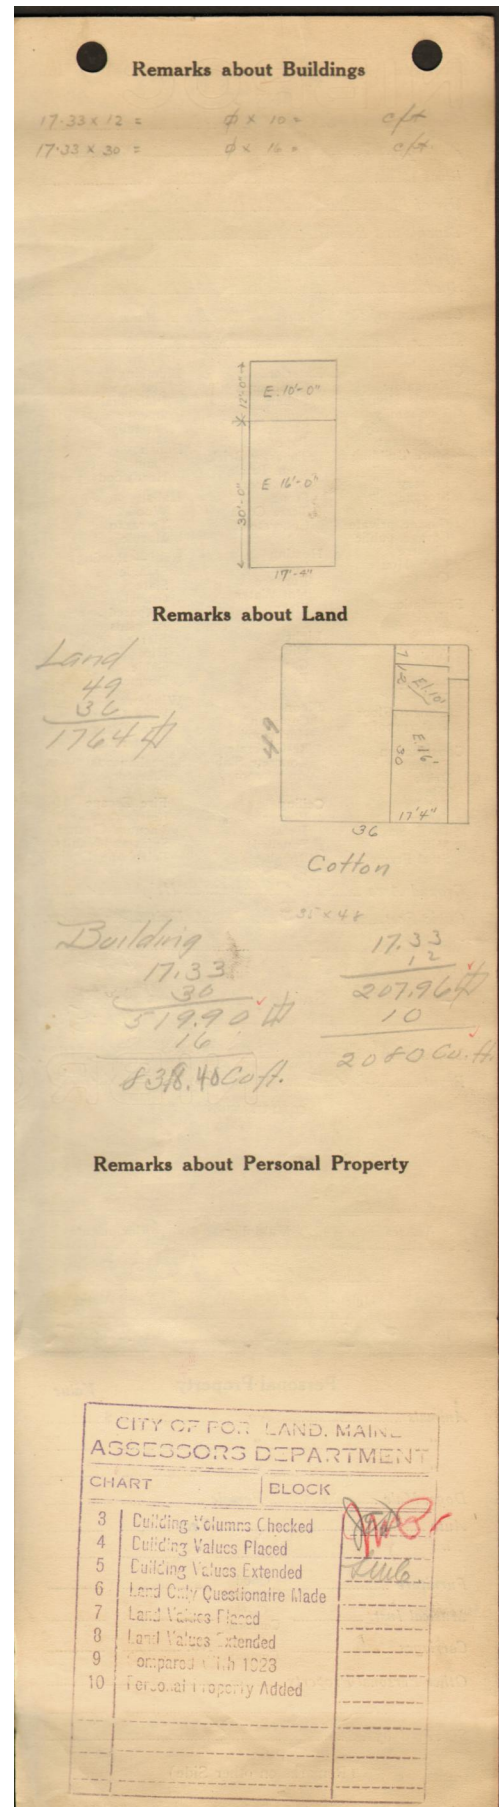 Remarks about Buildings
17.33 x 12 = ϕ x 10 = c/ft
17.33 x 30 = ϕ x 16 = c/ft
12'-0" E. 10'-0"
30'-0" E. 16'-0"
17'-4"
Remarks about Land
Land
49
36
1764
7
12 E.10'
49 30 E.16'
17'4"
36
Cotton
35 x 48
Building
17.33
30
519.90
16
8318.40 Co ft.
17.33
12
207.96
10
2080 Cu. ft.
Remarks about Personal Property
CITY OF PORTLAND, MAINE
ASSESSORS DEPARTMENT
CHART BLOCK
3 Building Volumns Checked
4 Building Values Placed
5 Building Values Extended
6 Land Only Questionaire Made
7 Land Values Placed
8 Land Values Extended
9 Compared With 1923
10 Personal Property Added